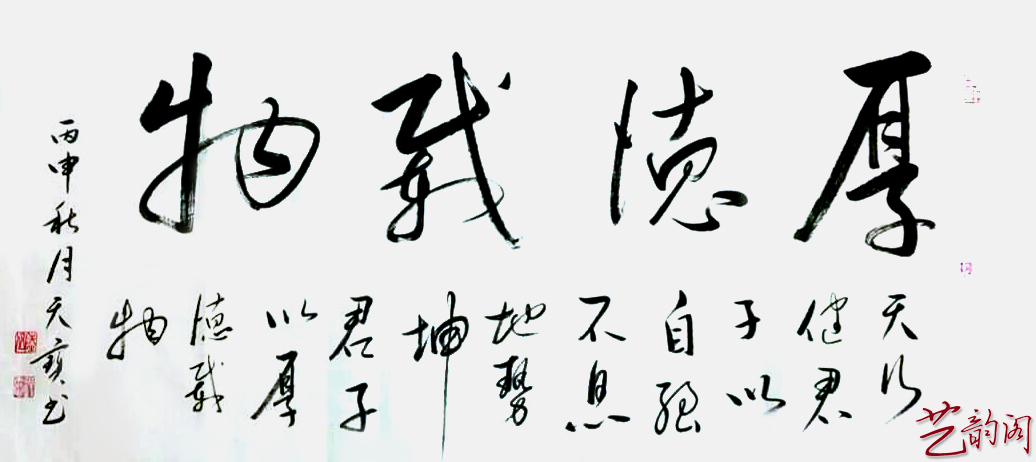 厚德载物
天行
健君
子以
自强
不息
地势
坤
君子
以厚
德载
物
丙申秋月天宝书
艺韵阁